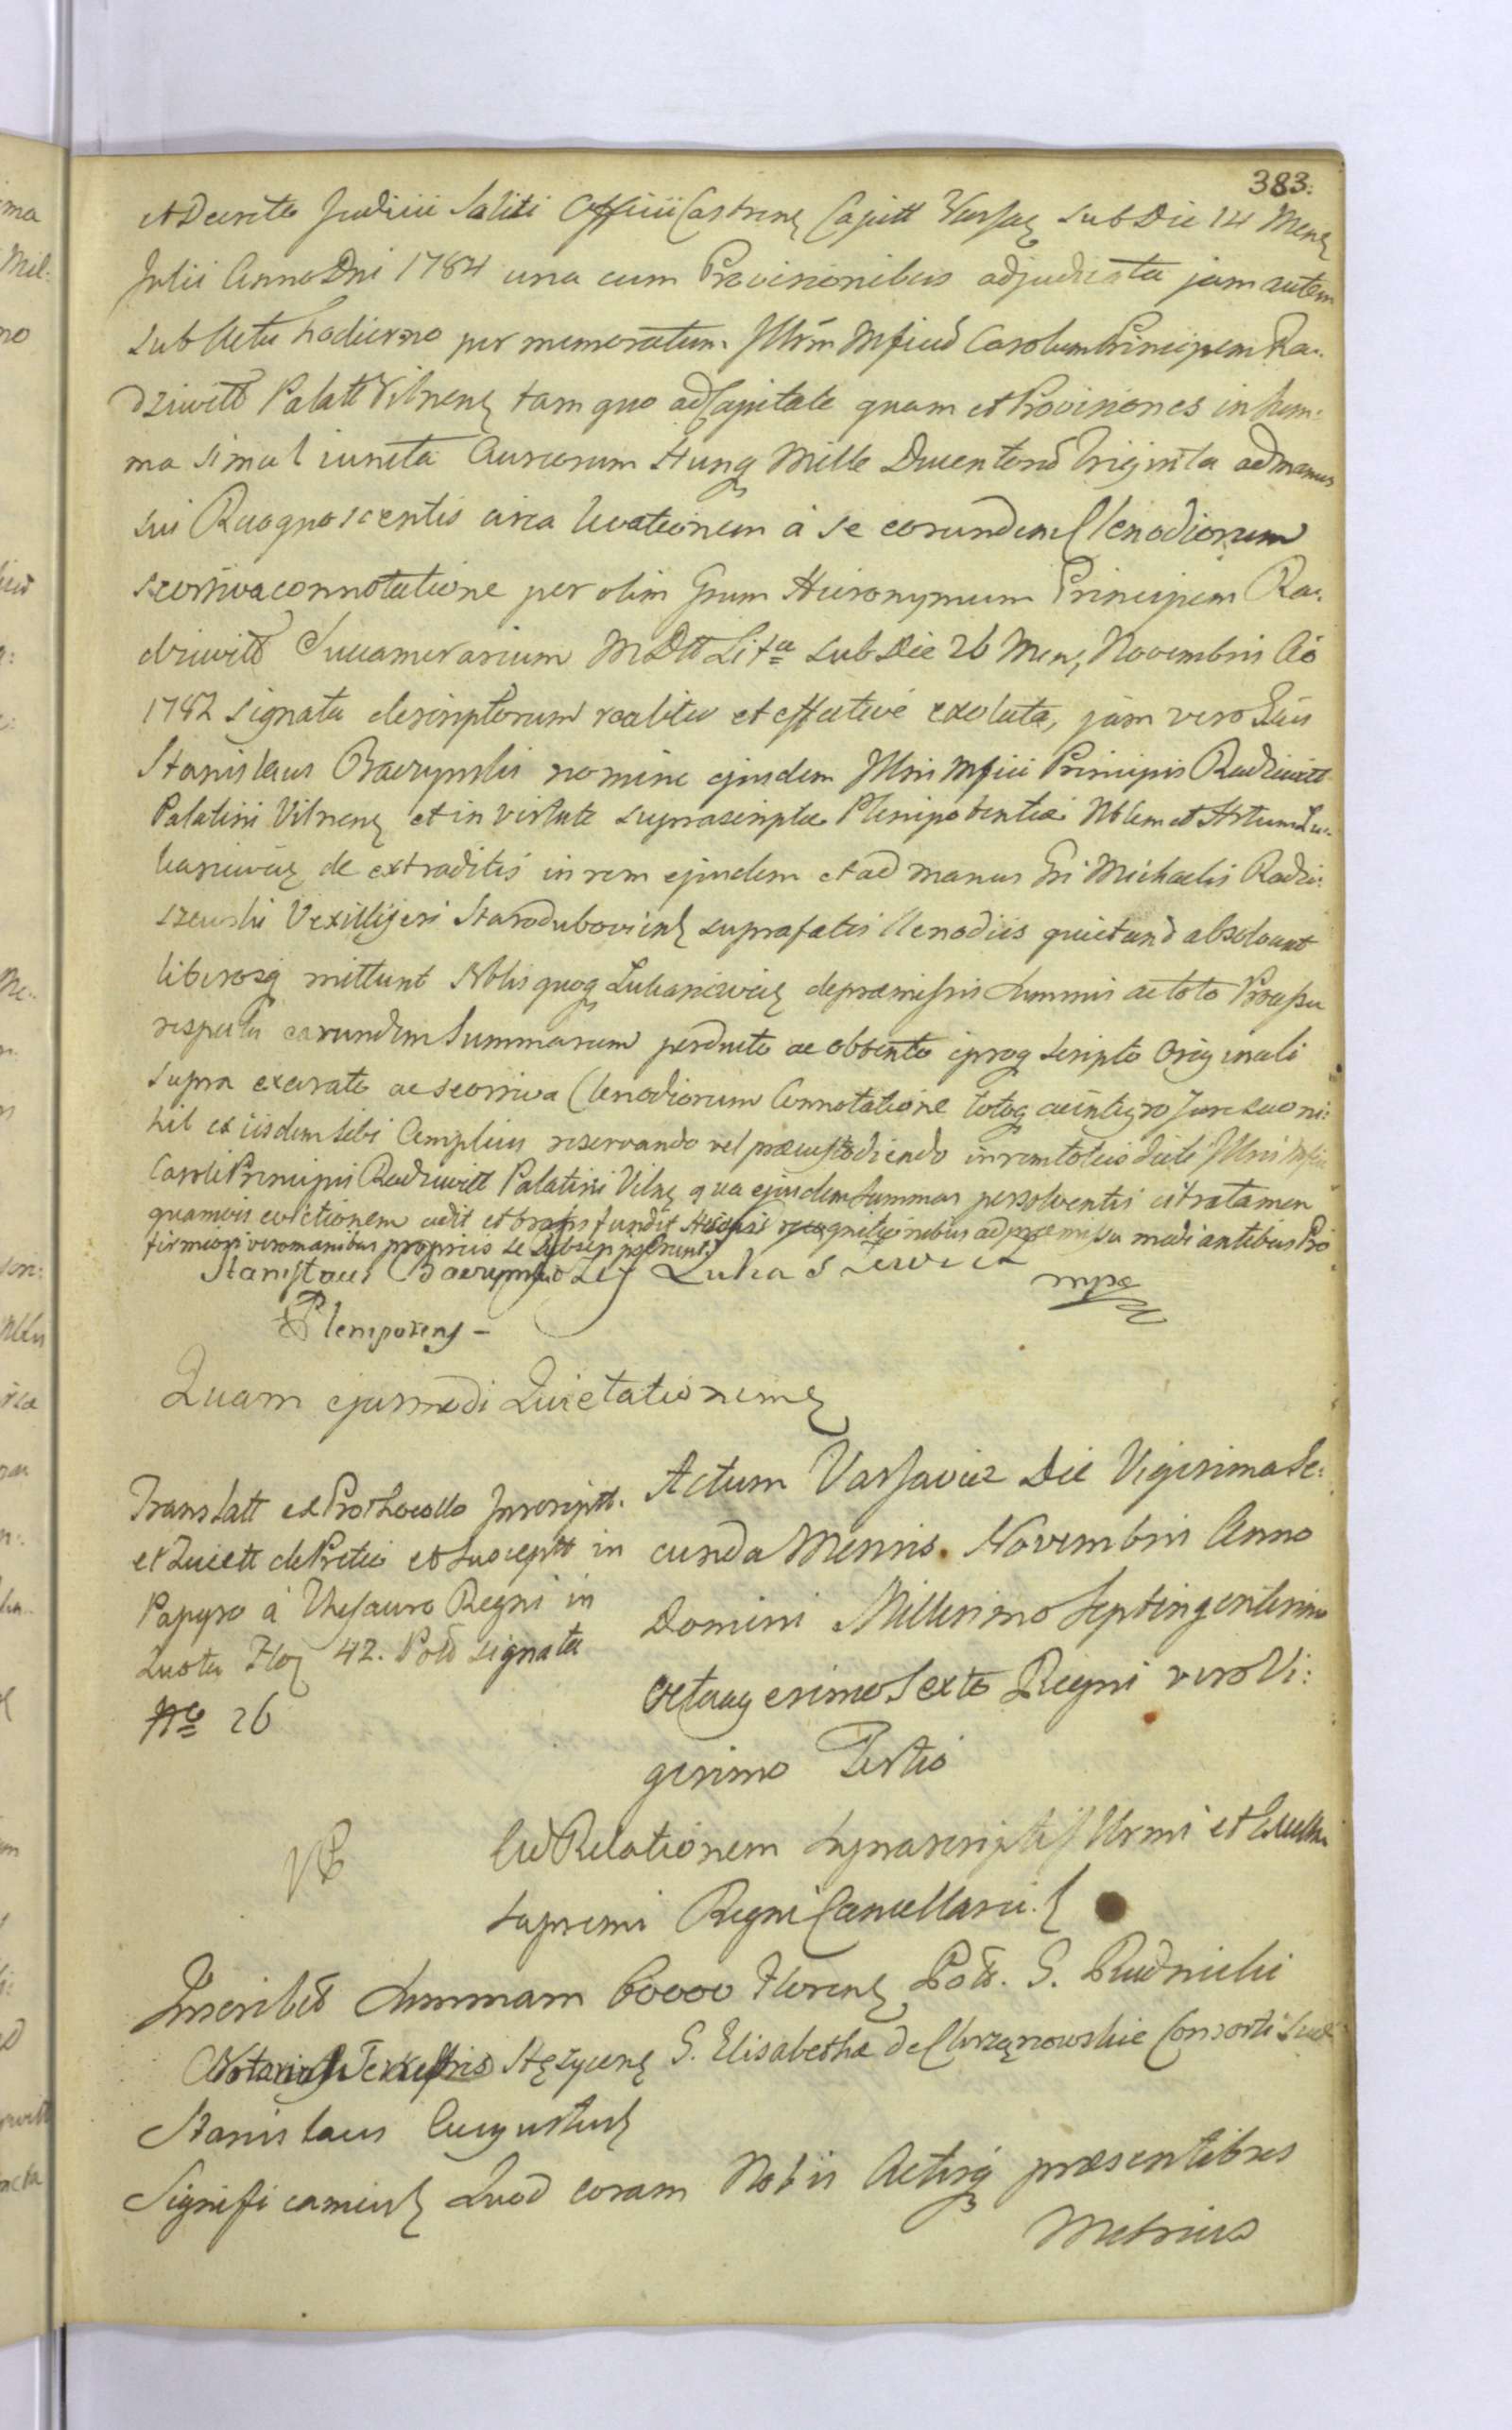 383.
et Decreto Judicii Saliti Officii Castrenς Capitt Varsaς sub Die 14 Menς
Julii Anno Dni 1784 una cum Provisionibus adjudicata jam autem
sub Actu hodierno per memoratum Illrm Mficũ Carolum Principem Ra:
dziwiłł Palatt Vilnenς tam quo ad Capitale quam et Provisiones in Sum:
ma simul iuncta Aureorum Hung Mille Ducentorũ Triginta ad manus
sui Recognoscentis circa levationem à se eorundem Clenodiorum
scorsiva connotatione per olim Grum Hieronymum Principem Ra:
dziwiłł Succamerarium M D Litae sub Die 26 Menς Novembris Ao
1782 signata descriptorum realiter et effective exoluta, jam vero Grus
Stanislaus Baczynski nomine ejusdem Illris Mfici Principis Radziwiłł
Palatini Vilnenς et in virtute suprascriptae Plenipotentiae Nblem et Artum Lu:
kasiewicz de extraditis in rem ejusdem et ad manus Gri Michaelis Radzi:
szewski Vexilliferi Starodubovienς suprafatis Clenodiis quietant absolvunt
liberosq mittunt Nblis quoq Lukasiewicz de praemissis Summis ac toto Processu
respectu earundem Summarum perducto ac obtento ipsoq scripto Originali
supra exarato ac scorsiva Clenodiorum Connotatione totoq ac integro Jure suo ni:
hil ex iisdem sibi Amplius reservando vel praecustodiendo in rem toties dicti Illris Mfici
Caroli Principis Radziwiłł Palatini Vilnς qua ejusdem Summas persolventis citra tamen
quamvis evictionem cedit et transfundit Hisce suis recognitionibus ad praemissa mediantibus Pro
firmiori vero manibus propriis se subscripserunt
Stanisław Baczynski Lukasiewicz
mpa
Plenipotens –
Quam ejusmodi Quietationemς
Translatt ex Prothocollo Inscriptt.
et Quiett de Pretio et Susceptt in
Papyro à Thesauro Regni in
Quota Floς 42. Pol signata
No 26
Actum Varsaviae Die Vigesima Se:
cunda Mensis Novembris Anno
Domini Millesimo Septingentesimo
Octuagesimo Sexto Regni vero Vi:
gesimo Tertio
NB
Ad Relationem suprascripti Illrmi et Excellmi
Supremi Regni Cancellarii ς
Inscribit Summam 60000 Florenς Pol. G. Rudnicki
Notarius Terrestris Stęzycenς G. Elisabetha de Chrząnowskie Consorti suae
Stanislaus Augustusς
Significamusς Quod coram Nobis Actisq praesentibus
Metrices